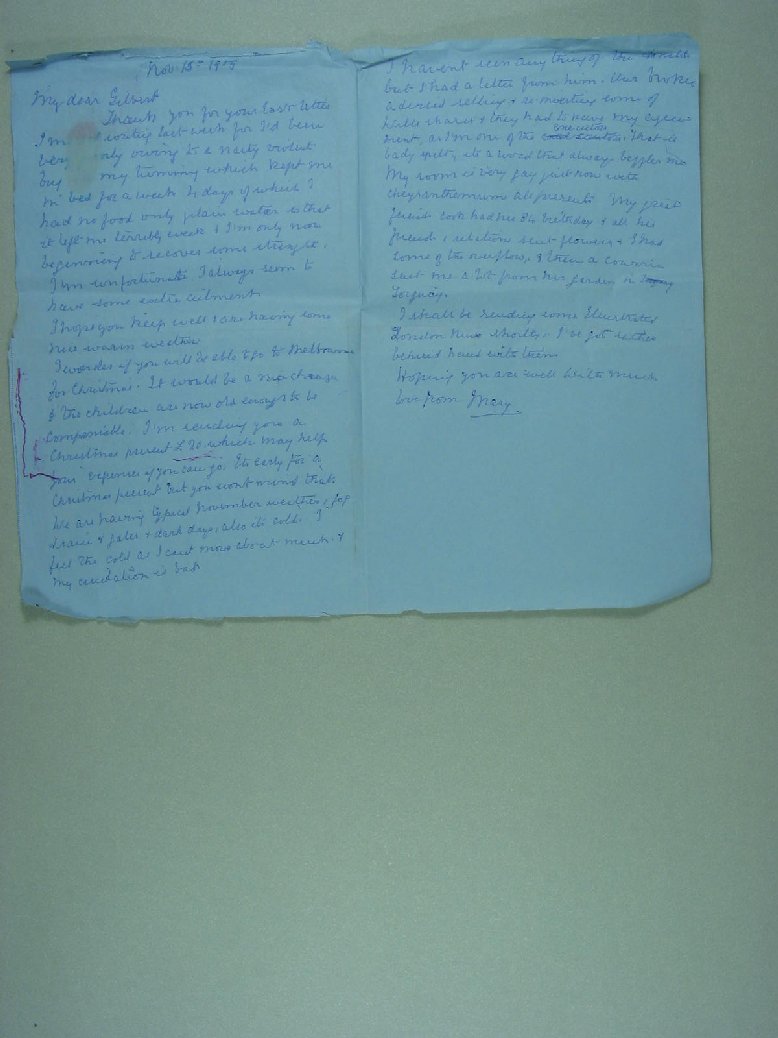 Nov. 15th 19
My dear Gilbert
Thank you for your last letter
I'm writing last week for I'd been
very only owing to a nasty violent
bug my tummy which kept me
in bed for a week 4 days of which I
had no food only plain water so that
it left me terribly weak & I'm only now
beginning to recover some strength.
I'm unfortunate I always seem to
have some ailment.
I hope you keep well & are having some
nice warm weather
I wonder if you will be able to go to Melbourne
for Christmas. It would be a nice change
& the children are now old enough to be
companiable. I'm sending you a
Christmas present £20 which may help
your expenses if you can go. Its early for a
Christmas present but you wont mind that.
We are having typical November weather, fog
& rain & gales & dark days, also its cold. I
feel the cold as I cant move about much &
my is bad
I havent seen any thing of the
but I had a letter from him. His broker
advised selling & reinvesting some of
his shares & they had to have my agree
ment, as I'm one of the executors. That is
badly spelt, its a word that always boggles me
My room is very gay just now with
chrysanthemums at present. My
cook had her birthday & all her
friends & relations sent flowers & I had
some of the overflow, & then a
sent me a lot from his garden in
Torquay.
I shall be sending some Illustrated
London News shortly, I've got rather
behind hand with them
Hoping you are well with much
love from Mary.